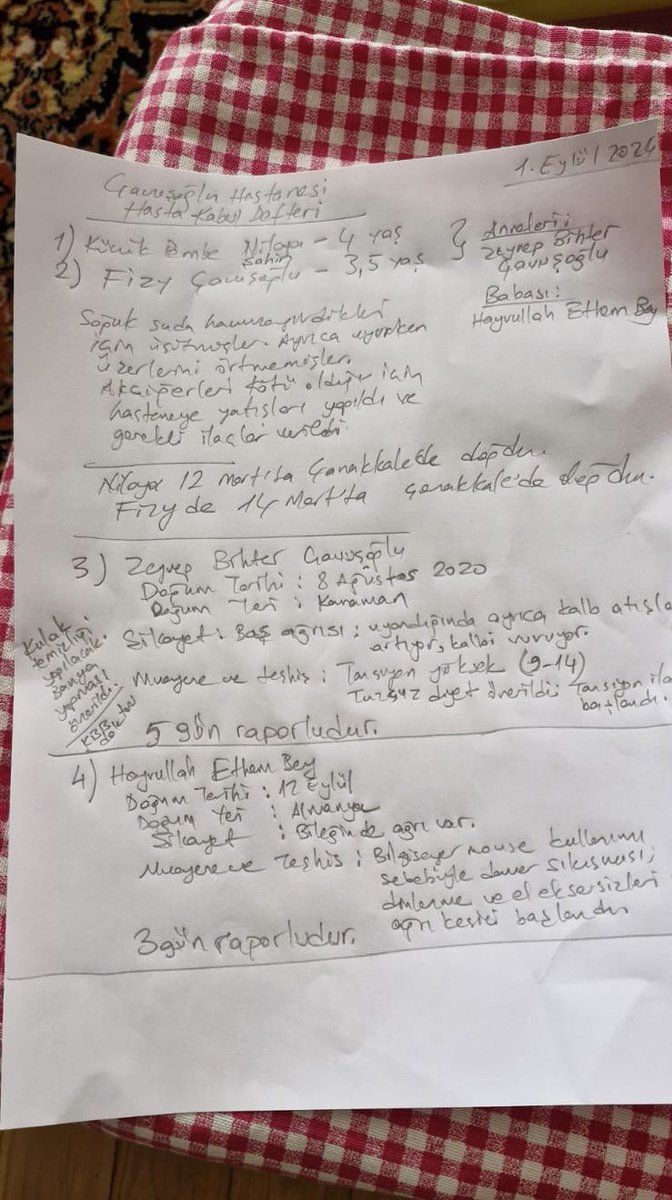 1. Eylül 2024
Çavuşoğlu Hastanesi
Hasta Kabul Defteri
1) Küçük Pembe Niloya - 4 yaş
Şahin
2) Fizy Çavuşoğlu - 3,5 yaş
} Anneleri:
Zeynep Bihter
Çavuşoğlu
Babası:
Hayrullah Ethem Bey
Soğuk suda
için üşütmüşler. Ayrıca uyurken
üzerlerini örtmemişler.
Akciğerleri kötü olduğu için
hastaneye yatışları yapıldı ve
gerekli ilaçlar verildi.
Niloya 12 Mart'ta Çanakkale'de doğdu.
Fizy de 14 Mart'ta Çanakkale'de doğdu.
3) Zeynep Bihter Çavuşoğlu
Doğum Tarihi : 8 Ağustos 2020
Doğum Yeri : Karaman
Şikayet : Baş ağrısı : uyandığında ayrıca kalb atışla
artıyor, kalbi vuruyor.
Muayene ve teşhis : Tansiyon yüksek (9-14)
Tuzsuz diyet önerildi. Tansiyon ila
başlandı.
5 gün raporludur.
Kulak
temizliği
yapılacak.
Banyo
yapması
önerildi.
KBB
doktoru
4) Hayrullah Ethem Bey
Doğum Tarihi : 12 Eylül
Doğum Yeri : Almanya
Şikayet : Bileğinde ağrı var.
Muayene ve Teşhis : Bilgisayar mouse kullanımı
sebebiyle damar sıkışması,
dinlenme ve el eksersizleri
ağrı kesici başlandı
3 gün raporludur.